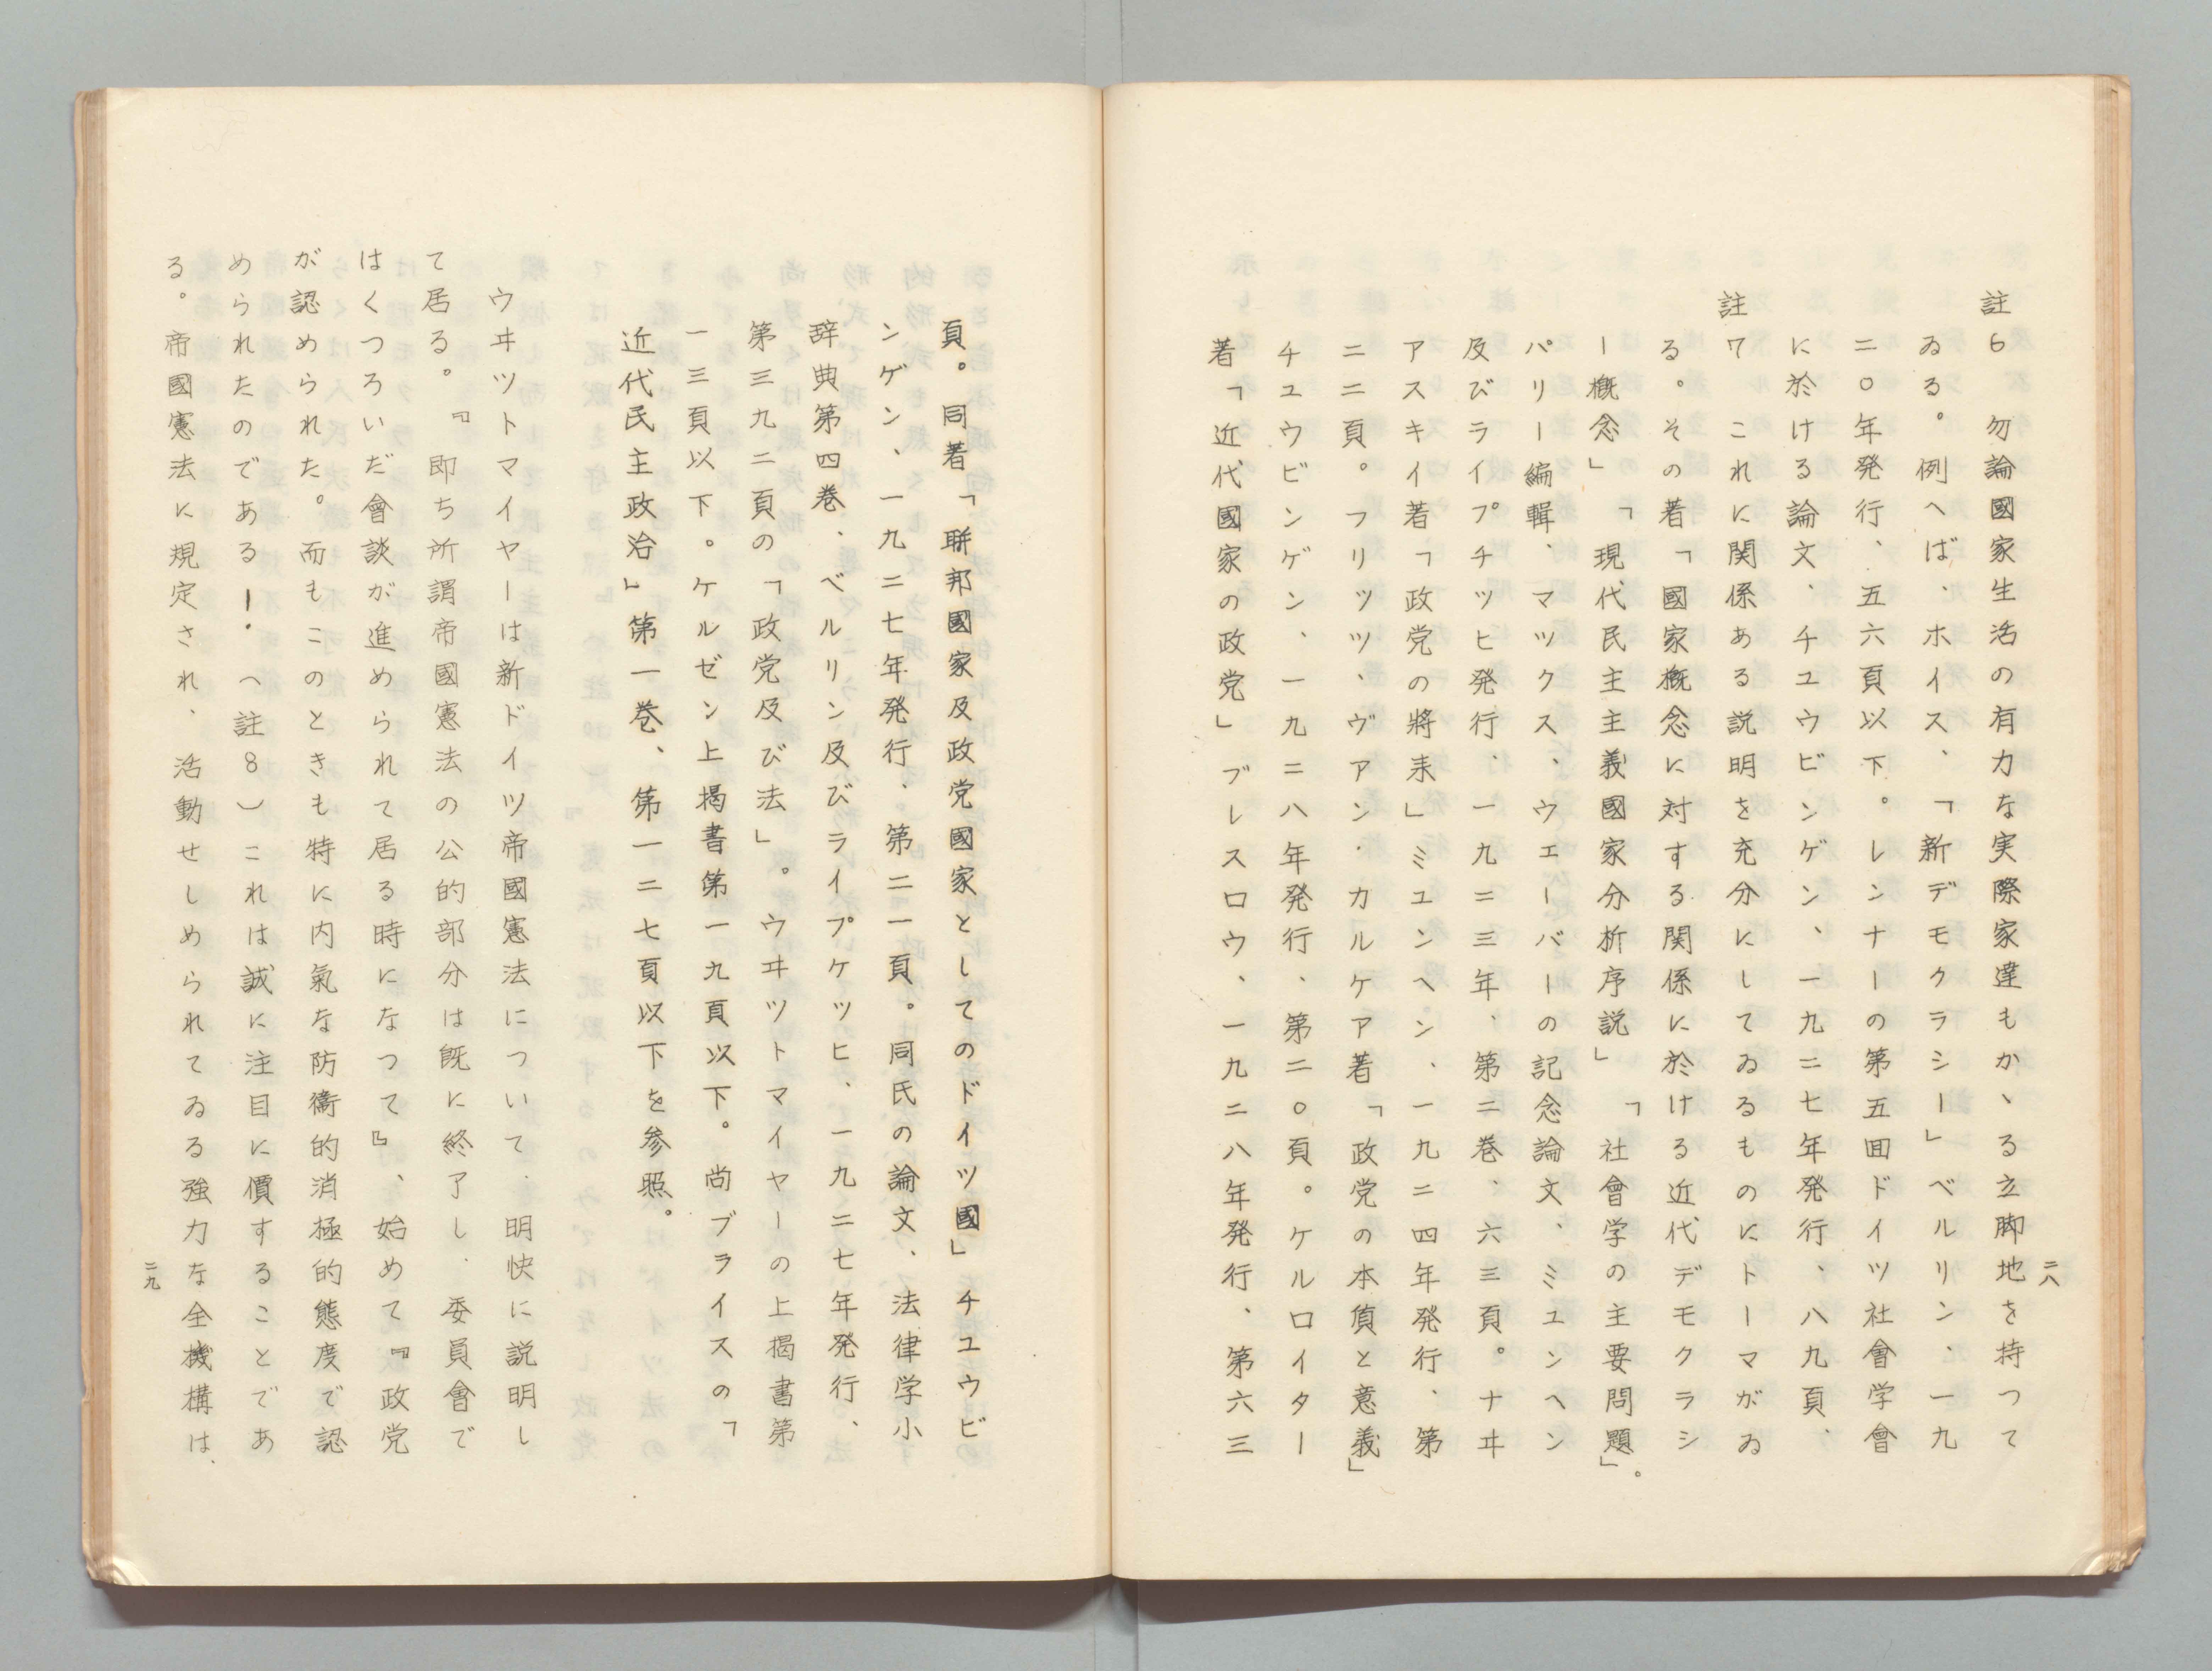 二八
註6　勿論國家生活の有力な実際家達もかゝる立脚地を持つて
ゐる。例へば、ホイス、「新デモクラシー」ベルリン、一九
二〇年発行、五六頁以下。レンナーの第五回ドイツ社會学會
に於ける論文、チユウビンゲン、一九二七年発行、八九頁、
註7　これに関係ある説明を充分にしてゐるものにトーマがゐ
る。その著「國家概念に対する関係に於ける近代デモクラシ
ー概念」「現代民主主義國家分析序説」「社會学の主要問題」。
パリー編輯、マツクス、ウエーバーの記念論文、ミユンヘン
及びライプチツヒ発行、一九二三年、第二巻、六三頁。ナヰ
アスキイ著「政党の將来」ミユンヘン、一九二四年発行、第
二二頁。フリツツ、ヴアン・カルケア著「政党の本値と意義」
チユウビンゲン、一九二八年発行、第二〇頁。ケルロイター
著「近代國家の政党」ブレスロウ、一九二八年発行、第六三
頁。同著「聯邦國家及政党國家としてのドイツ國」チユウビ
ンゲン、一九二七年発行、第二一頁。同氏の論文、法律学小
辞典第四巻、ベルリン及びライプケツヒ、一九二七年発行、
第三九二頁の「政党及び法」。ウヰツトマイヤーの上揭書第
一三頁以下。ケルゼン上揭書第一九頁以下。尚ブライスの「
近代民主政治」第一巻、第一二七頁以下を参照。
ウヰツトマイヤーは新ドイツ帝國憲法について、明快に説明し
て居る。『即ち所謂帝國憲法の公的部分は既に終了し、委員會で
はくつろいだ會談が進められて居る時になつて』、始めて『政党
が認められた。而もこのときも特に内氣な防衞的消極的態度で認
められたのである！。（註8）これは誠に注目に價することであ
る。帝國憲法に規定され、活動せしめられてゐる強力な全機構は、
二九